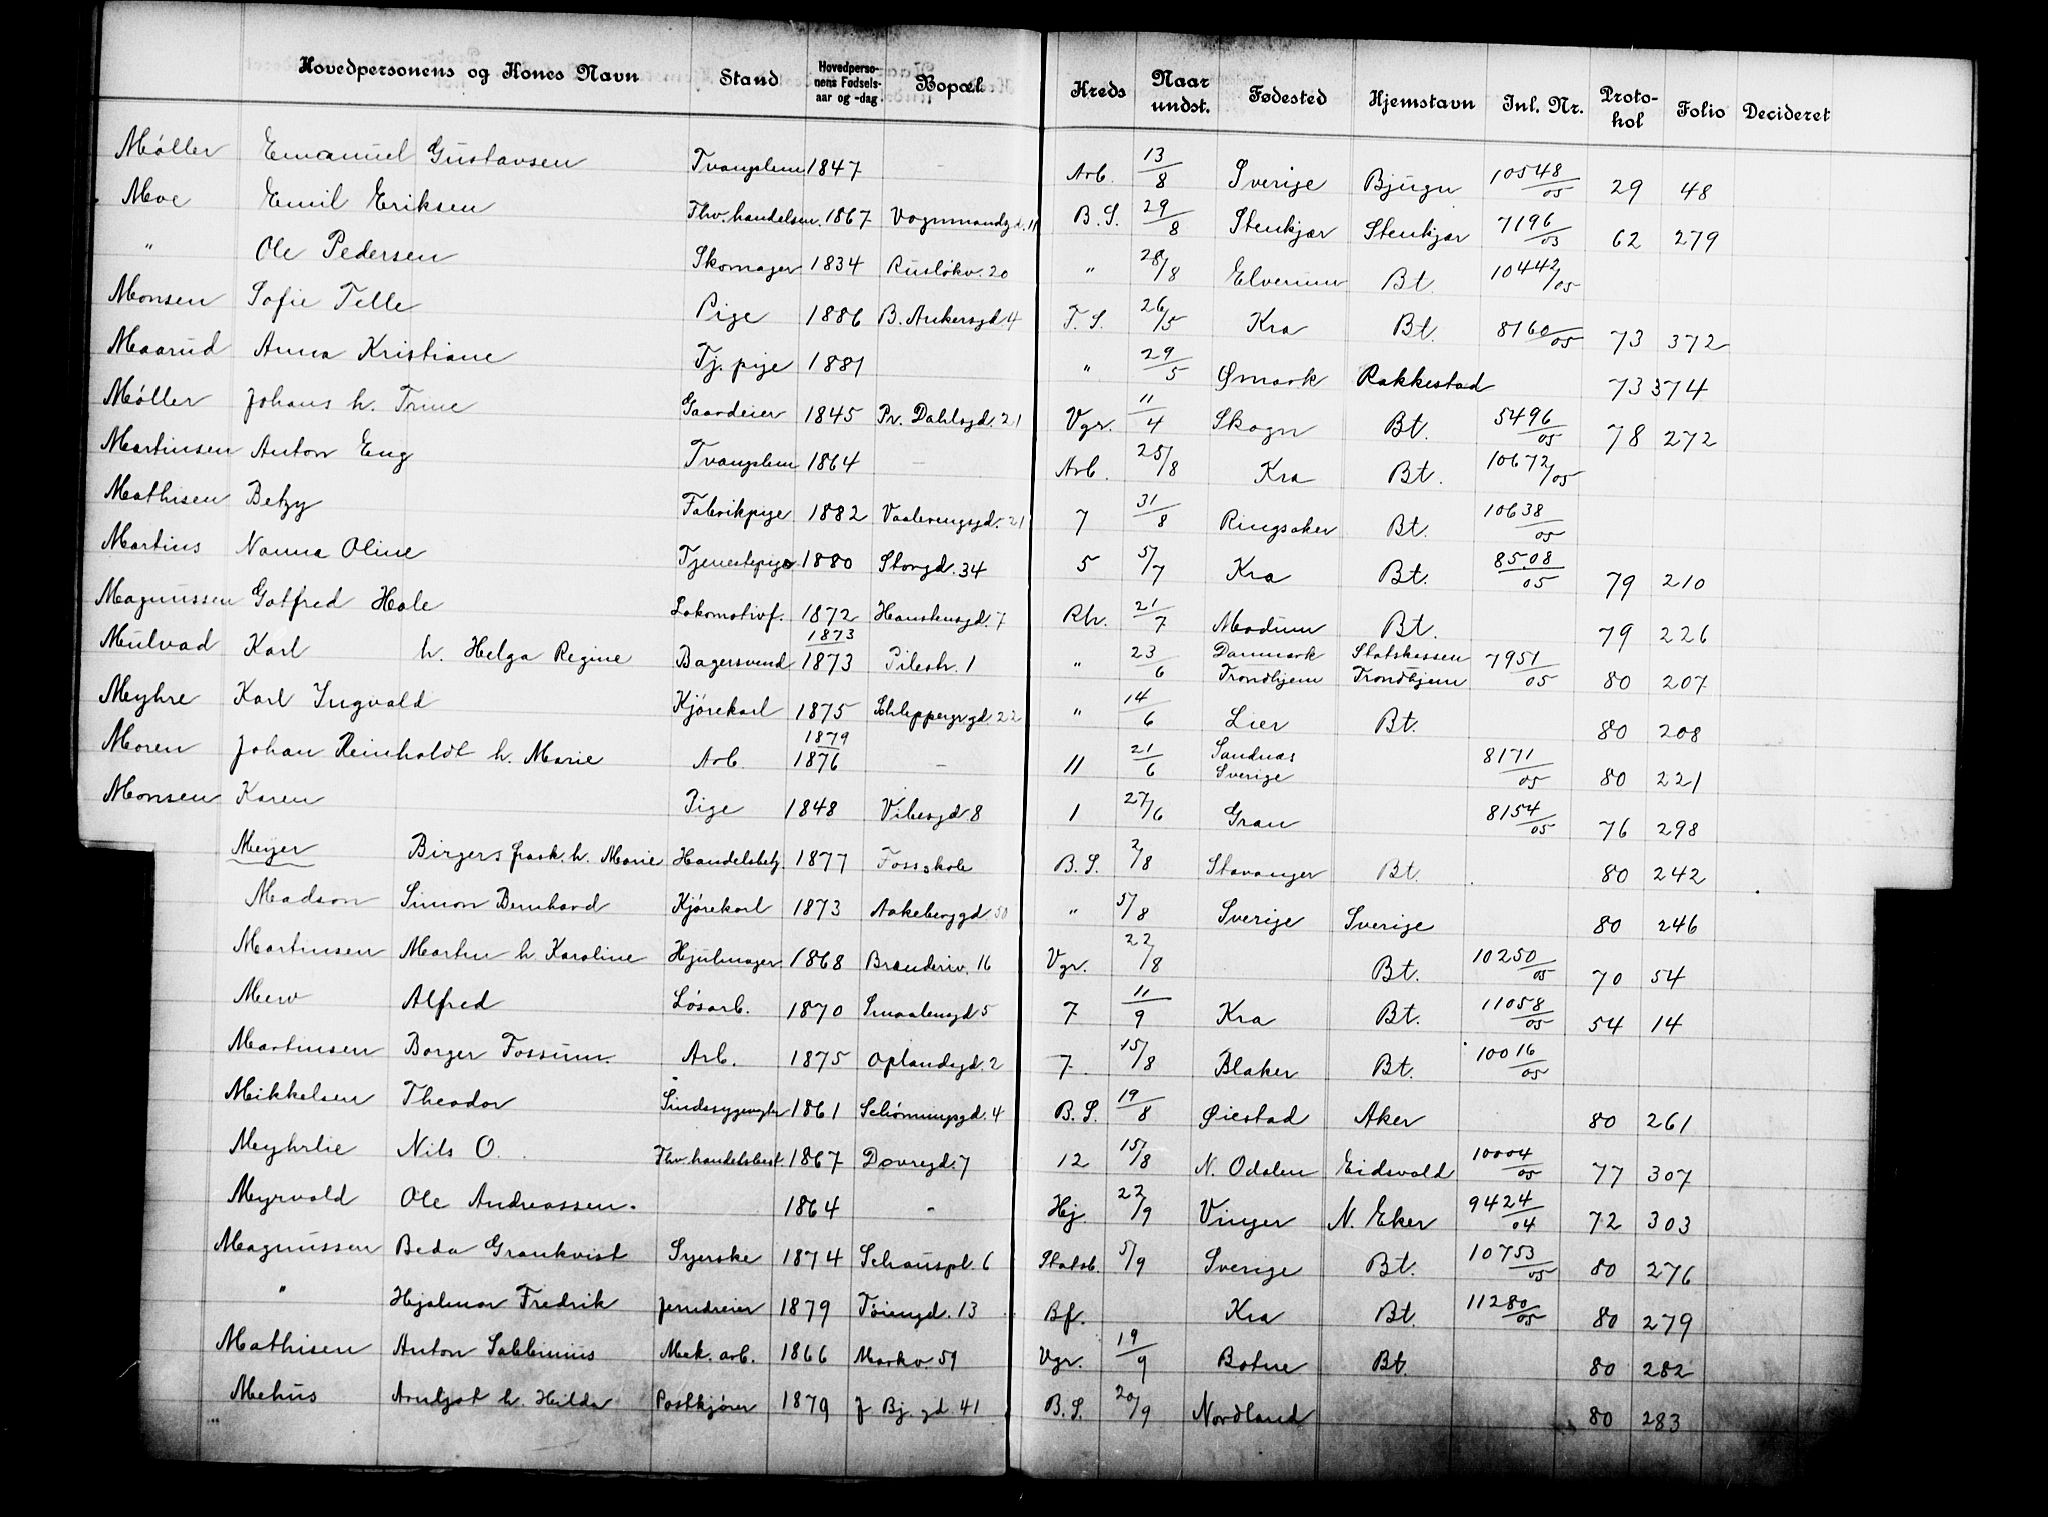 Hovedpersonens og Kones Navn Stand Hovedperso-nens Fødsels-aar og -dag Bopæl Kreds Naar undst. Fødested Hjemstavn Inl. Nr. Proto-kol Folio Decideret
Møller Emanuel Gustavsen Tvangslem 1847 - Arb. 13/8 Sverige Bjugn 10548/05 29 48
Moe Emil Eriksen Fhv. handelsm. 1867 Vognmandsgd. 11 B.S. 29/8 Stenkjær Stenkjær 7196/03 62 279
" Ole Pedersen Skomager 1834 Rusløkv. 20 " 28/8 Elverum Bt. 10442/05
Monsen Sofie Telle Pige 1886 B. Ankersgd 4 T.S. 26/5 Kra Bt. 8160/05 73 372
Maarud Anna Kristiane Tj. pige 1881 " 29/5 Ømark Rakkestad 73 374
Møller Johans h. Trine Gaardeier 1845 Pr. Dahlsgd. 21 Vgr. 11/4 Skogn Bt. 5496/05 78 272
Martinsen Anton Eng Tvangslem 1864 - Arb. 25/8 Kra Bt. 10672/05
Mathisen Betzy Fabrikpige 1882 Vaalerengsgd. 21 7 31/8 Ringsaker Bt. 10638/05
Martins Nanna Oline Tjenestepige 1880 Storgd. 34 5 5/7 Kra Bt. 8508/05 79 210
Magnussen Gotfred Hole Lokomotivf. 1872 Hanstensgd. 7 Rh. 21/7 Modum Bt. 79 226
Mulvad Karl h. Helga Regine Bagersvend 1873/1873 Pilestr. 1 " 23/6 Danmark Trondhjem Statskassen Trondhjem 7951/05 80 207
Meyhre Karl Ingvald Kjørekarl 1875 Schleppegrgd 22 " 14/6 Lier Bt. 80 208
Moren Johan Reinholdt h. Marie Arb. 1879/1876 - 11 21/6 Sandnæs Sverige 8171/05 80 221
Monsen Karen Pige 1848 Vibesgd 8 1 27/6 Gran 8154/05 76 298
Meyer Birger h. Marie Handelsbetj. 1877 Fossskole B.S. 2/8 Stavanger Bt. 80 242
Madson Simon Bernhard Kjørekarl 1873 Aakeberggd 50 " 5/8 Sverige Sverige 80 246
Martinsen Martin h Karoline Hjulmager 1868 Brenneriv. 16 Vgr. 22/8 Bt. 10250/05 70 54
Alfred Løsarb. 1870 Smaalensgd 5 7 11/9 Kra Bt. 11058/05 54 14
Martinsen Borger Fossum. Arb. 1875 Oplandsgd. 2 7 15/8 Blaker Bt. 10016/05
Mikkelsen Theodor Sindssygevogter 1861 Schønningsgd. 4 B.S. 19/8 Øiestad Aker 80 261
Meyhrlie Nils O. Fhv. handelsbest. 1867 Dovregd. 7 12 15/8 N. Odalen Eidsvold 10004/05 77 307
Myrvold Ole Andreassen. 1864 - Hj. 22/9 Vinger N. Eker 9424/04 72 303
Magnussen Beda Grankvist Syerske 1874 Schouspl. 6 Statsb. 5/9 Sverige Bt. 10753/05 80 276
" Hjalmar Fredrik Jerndreier 1879 Tøiengd. 13 Bf. Kra Bt. 11280/05 80 279
Mathisen Anton Sabbinius Mek. arb. 1866 Markv. 59 Vgr. 19/9 Botne Bt. 80 282
Mehus Arnljot h. Hilda Postkjører 1879 J. Bj. gd. 41 B.S. 20/9 Nordland 80 283